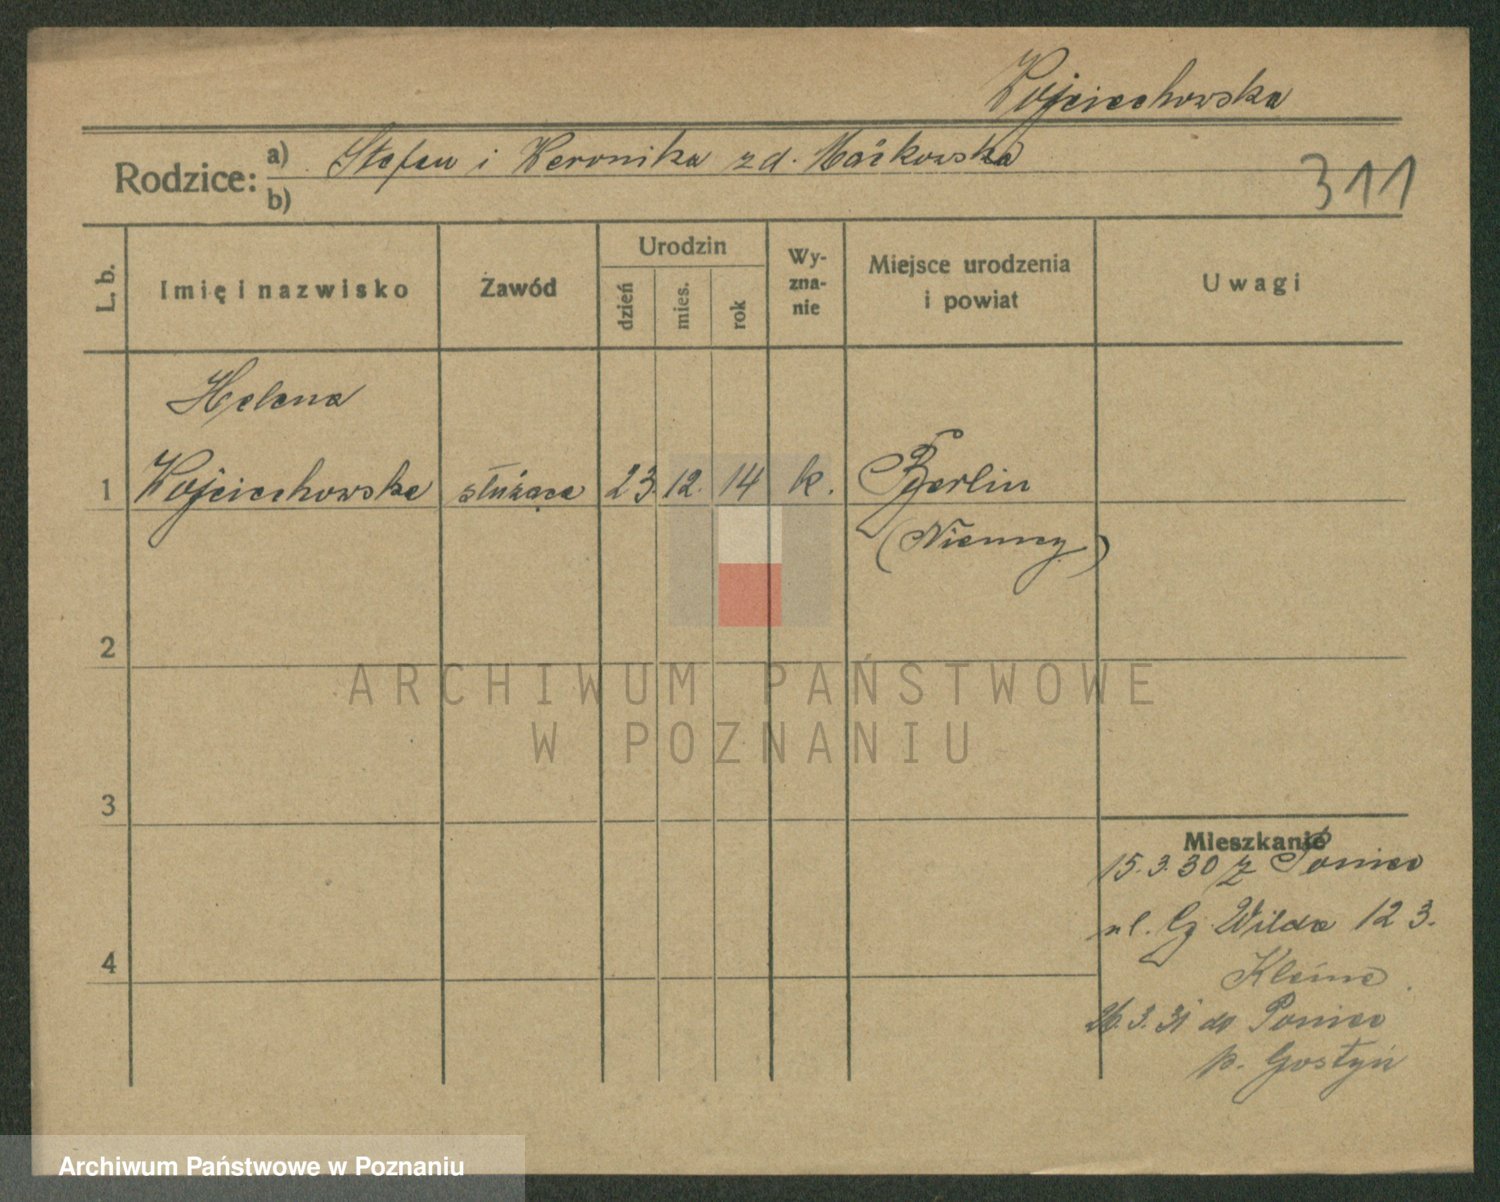 Wojciechowska
Rodzice: a) Stefan i Weronika zd. Maćkowska
b)
311
L. b.
Imię i nazwisko
Zawód
Urodzin
dzień
mies.
rok
Wy-
zna-
nie
Miejsce urodzenia
i powiat
Uwagi
Helena
1 Wojciechowska służąca 23. 12. 14 k. Berlin
(Niemcy)
2
ARCHIWUM PAŃSTWOWE
W POZNANIU
3
Mieszkanie
15.3.30 z Poniec
ul. G. Wilda 123.
Kleine
4
26.3.31 do Poniec
p. Gostyń
Archiwum Państwowe w Poznaniu